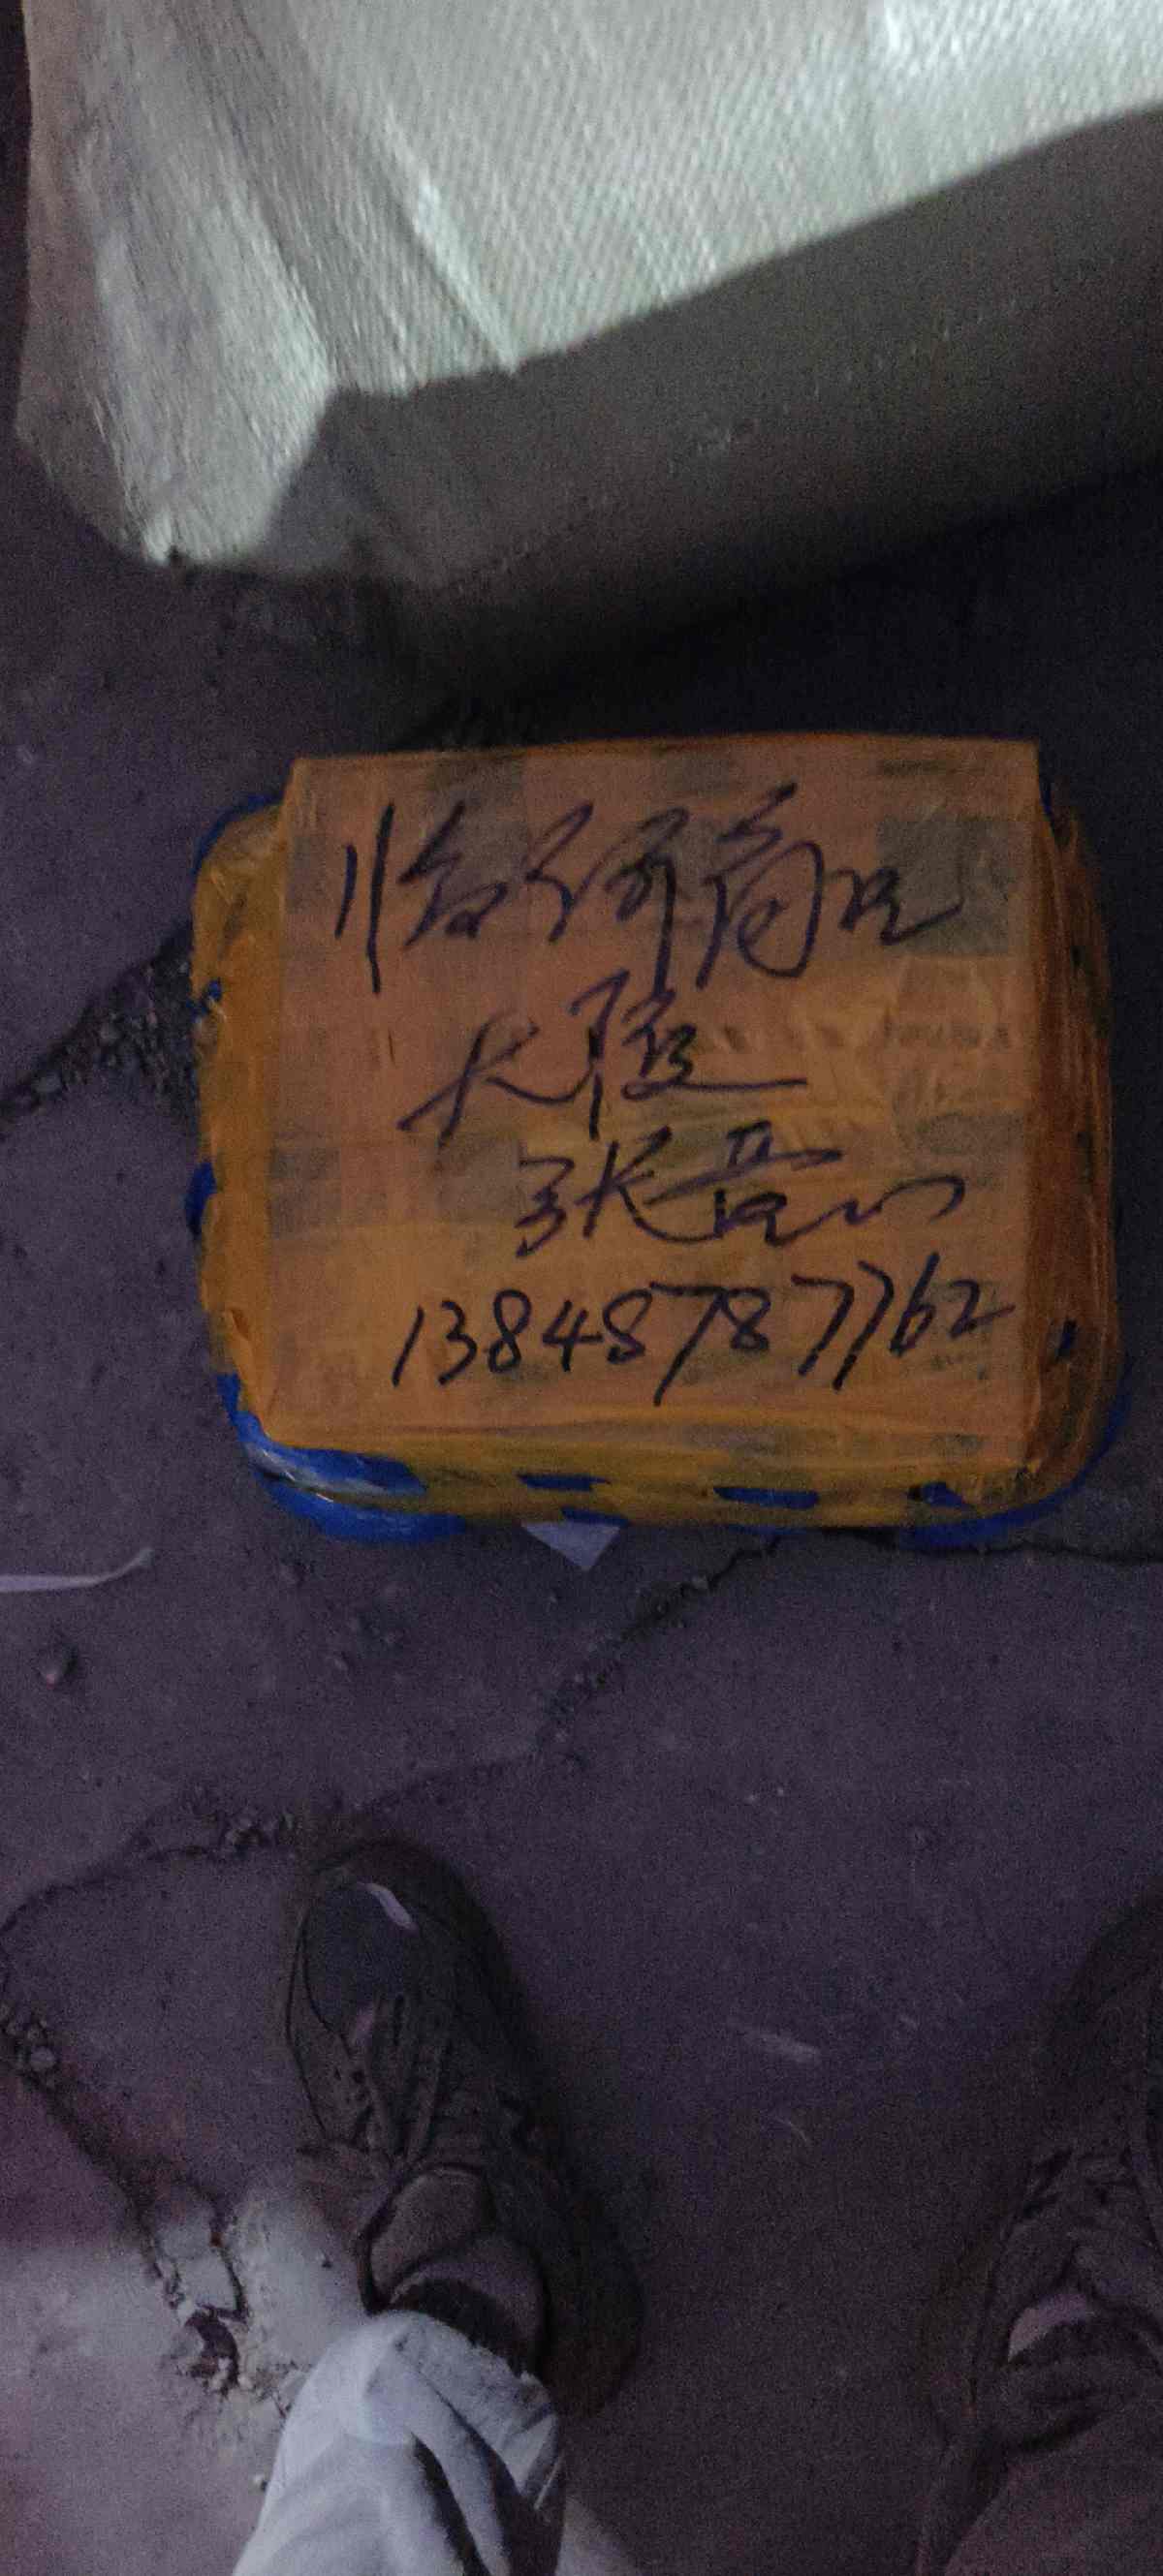 临河商记
大隆
张晋心
13848787762